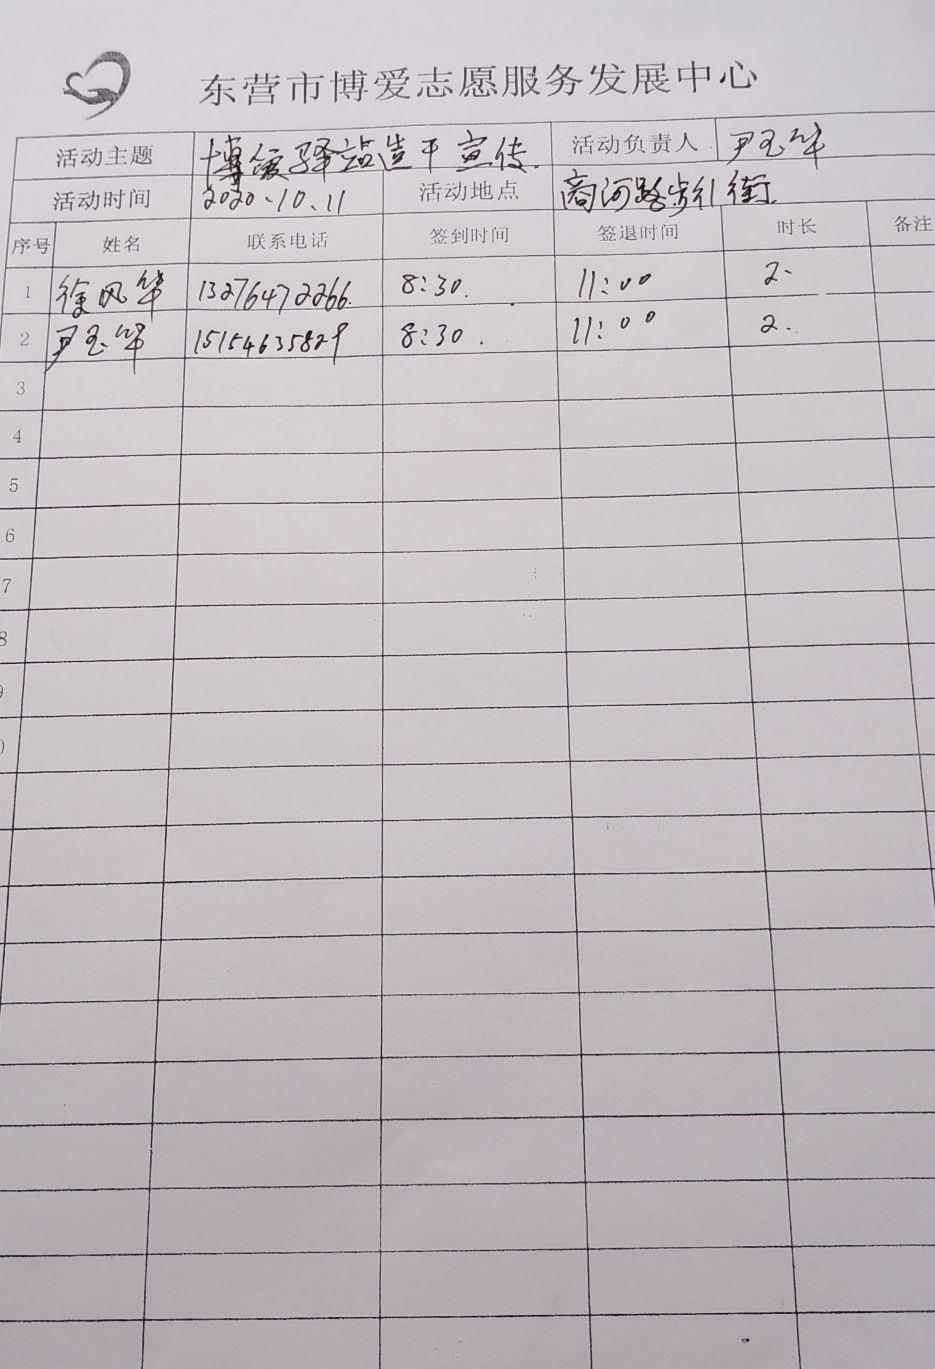 东营市博爱志愿服务发展中心
活动主题 博爱驿站造干宣传. 活动负责人 尹玉华
活动时间 2020.10.11 活动地点 商河路步行街
序号 姓名 联系电话 签到时间 签退时间 时长 备注
1 徐风华 13276472266. 8:30. 11:00 2.
2 尹玉华 15154635829 8:30. 11:00 2.
3
4
5
6
7
8
9
0